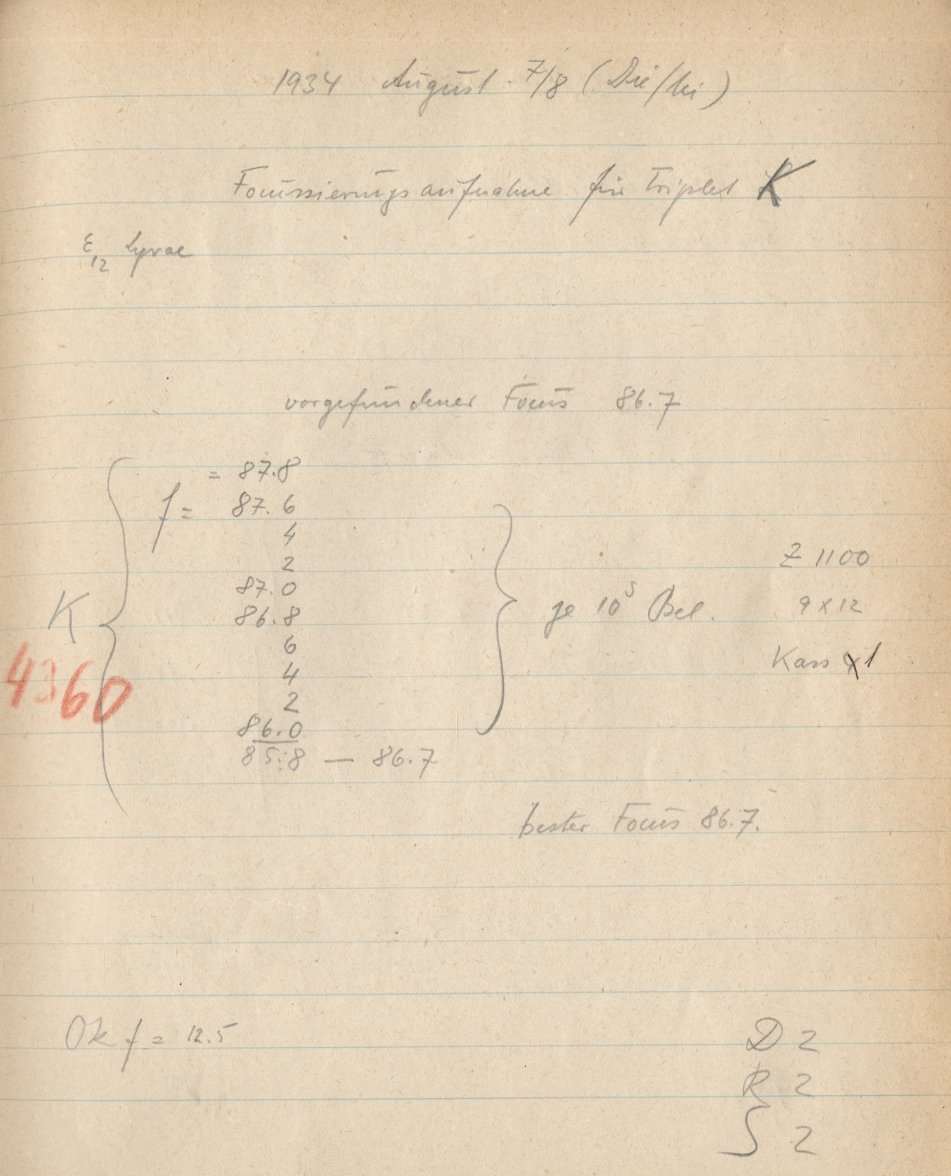 1934 August 7/8 (Die/Mi)
Focussierungsaufnahme für Triplet K
ε 12 Lyrae
vorgefundener Focus 86.7
= 87.8
f = 87.6
4
2
87.0
K 86.8 je 10ˢ Bel. Z 1100
6 9 x 12
4360 4 Kass 1
2
86.0
85.8 — 86.7
bester Focus 86.7.
Ok f = 12.5
D 2
R 2
S 2